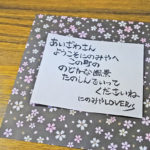 あいざわさん
ようこそにのみやへ
この町の
のどかな風景
たのしんでいって
くださいね
にのみやLOVERS